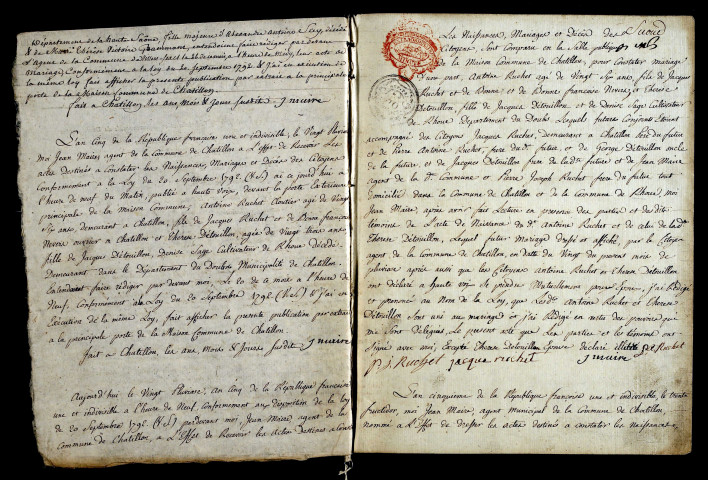 Département de la haute Saône, fille majeure d'Alexandre Antoine Suy, décédé
& de Marie Thérèse Victoire Grammont, entendoient faire rédiger par devant
L'agent de la Commune de
Mariage Conformément à la Loy du 20 Septembre 1792 & J'ai en exécution de
la même Loy fait afficher la présente publication par extrait à la principale
porte de la Maison Commune de Chatillon.
fait à Chatillon, les ans, Mois & Jours susdits. J maire
L'an cinq de la République françoise une et indivisible, le Vingt Pluviose
moi Jean Maire, agent de la Commune de Chatillon à L'effet de Recevoir Les
actes destinés à Constater les Naissances, Mariages et Décès des Citoyens
Conformément à la Loy du 20 Septembre 1792 (V.S.) ai ce jourd'hui à
l'heure de neuf du Matin, publié à haute voix, devant la porte Extérieure
principale de la maison Commune, Antoine Ruchet Cloutier agé de Vingt
Sept ans, demeurant à Chatillon, fils de Jacques Ruchet et de Bonne françoise
Noirée ouvrier à Chatillon et Thérèse Détouillon, agée de Vingt trois ans
fille de Jacques Détouillon, Denise Sage Cultivateur de Rhone Décédé
Demeurant dans le Département du Doubs Municipalité de Chatillon.
Entendent faire rédiger par devant moi, Le 20 de ce mois à l'heure de
Neuf, Conformément à la Loy du 20 Septembre 1792 (V.S.) & J'ai en
Exécution de la même Loy, fait afficher la présente publication par extrait
à la principale porte de la Maison Commune de Chatillon.
fait à Chatillon, les ans, Mois & Jours susdit. J maire
Aujourd'hui le Vingt Pluviose, An cinq de la République françoise
une et indivisible à l'heure de Neuf, Conformément aux disposition de la Loy
de 20 Septembre 1792 (V.S.) pardevant moi, Jean Maire agent de la
Commune de Chatillon, à L'Effet de Recevoir les Actes Destinés à Constater
Les Naissances, Mariages et Décès des
Citoyens, sont Comparus en la Salle publique
de la Maison Commune de Chatillon, pour Constater mariage
D'une part, Antoine Ruchet agé de Vingt Sept ans, fils de Jacques
Ruchet et de Bonne françoise Noirés, et Thérèse
Détouillon, fille de Jacques Détouillon et de Denise Sage Cultivateur
de Rhone Département du Doubs. Lesquels futurs Conjoints étoient
accompagné des Citoyens Jacques Ruchet, demeurant à Chatillon Père du futur
et de Pierre Antoine Ruchet, frère du dt. futur, et de George Détouillon oncle
de la future, et de Jacques Détouillon frère de lad.te future et de Jean Maire
Agent de la dt. Commune et Pierre Joseph Ruchet frère du futur tout
domicilié dans la Commune de Chatillon et de la Commune de Rhone; moi
Jean Maire après avoir fait Lecture en présence des parties et desdits
témoins de l'acte de Naissance du dt. Antoine Ruchet et de celui de lad.te
Thérèse Détouillon, Lequel futur Mariage Dressé et affiché, par le Citoyen
agent de la commune de Chatillon, en date du Vingt du présent mois de
pluviose après aussi que les Citoyens Antoine Ruchet et Thérèse Détouillon
ont déclaré à haute voix se prendre Mutuellement pour Epoux, J'ai Rédigé
et prononcé au Nom de la Loy, que Lesd.ts Antoine Ruchet et Thérèse
Détouillon Sont uni au mariage et j'ai Rédigé en vertu des pouvoirs qui
me Sont Délégués, Le présent acte que Les parties et les témoins ont
Signé avec moi, Excepté Thérèse Détouillon Epouse déclaré illitéré
jacque ruchet J maire
L'an cinquième de la République françoise une et indivisible, le trente
fructidor, moi Jean Maire, agent municipal de la commune de Chatillon,
nommé à l'Effet de dresser les actes destinés à constater les Naissances,